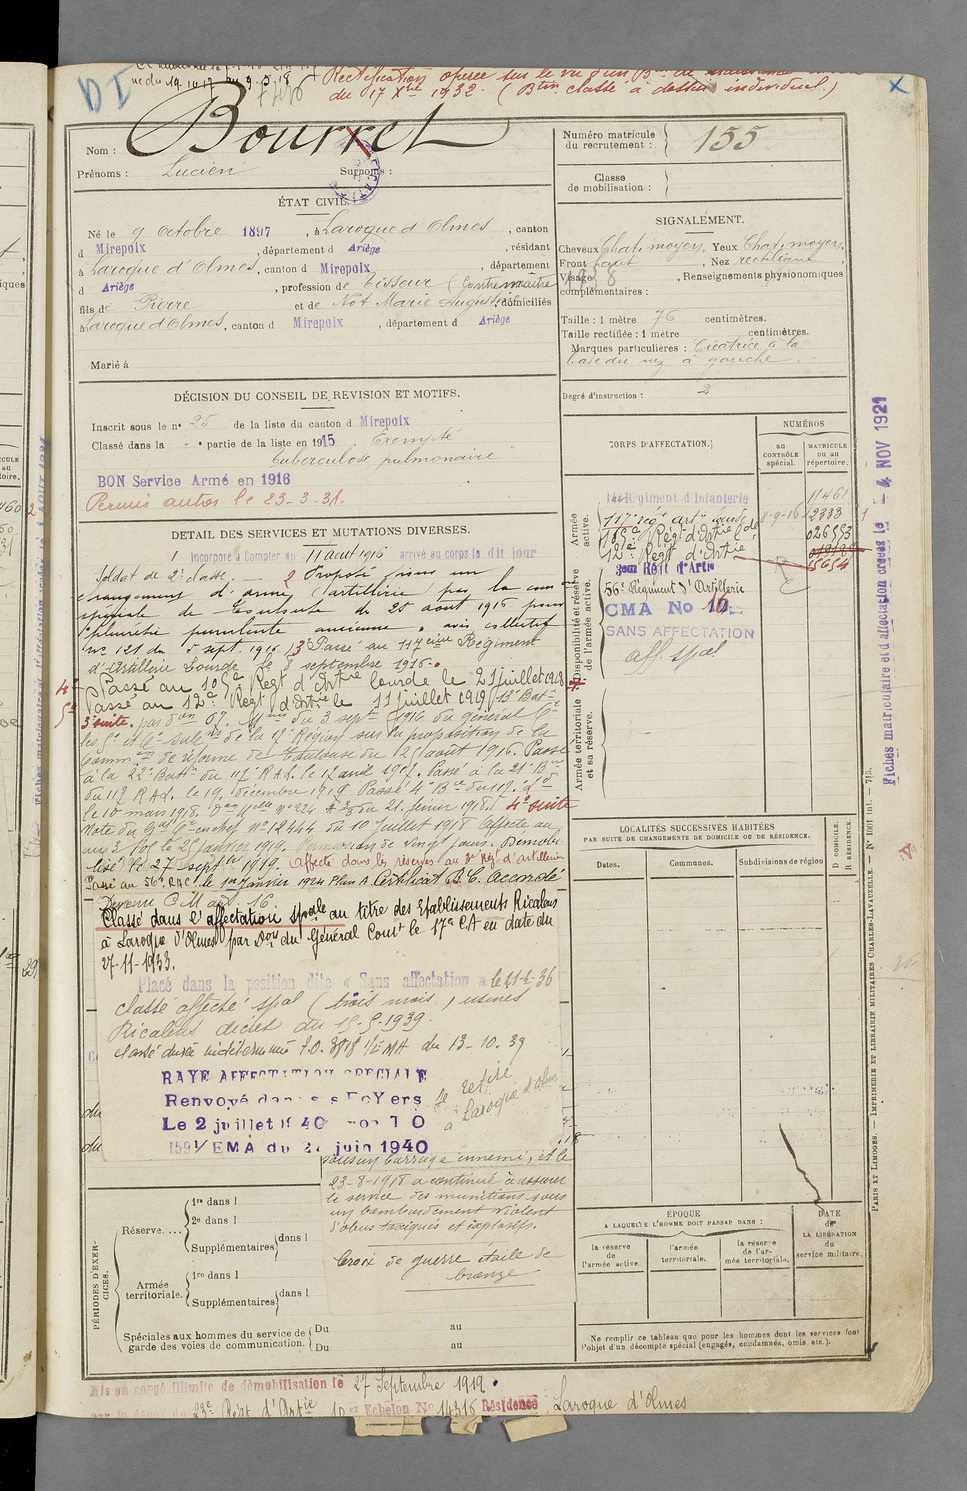 DI
ne du 19.10.17 au 9.5.18
Rectification opérée sur le vu d'un Btin de naissance
du 17 Xbre 1932. (Btin classé à dossier individuel.)
Nom : Bourret
Prénoms : Lucien Surnoms :
Numéro matricule du recrutement : 155
Classe de mobilisation :
ÉTAT CIVIL.
Né le 9 Octobre 1897, à Laroque d'Olmes, canton
d Mirepoix, département d Ariège, résidant
à Laroque d'Olmes, canton d Mirepoix, département
d Ariège, profession de tisseur (Contremaitre
fils de Pierre et de Not Marie Augustine domiciliés
à Laroque d'Olmes, canton d Mirepoix, département d Ariège
Marié à
SIGNALEMENT.
Cheveux Chat. moyen, Yeux Chat. moyen,
Front haut, Nez rectiligne,
Visage, Renseignements physionomiques
complémentaires :
1938
Taille : 1 mètre 76 centimètres.
Taille rectifiée : 1 mètre centimètres.
Marques particulières : Cicatrice à la
base du nez à gauche.
Degré d'instruction : 2
DÉCISION DU CONSEIL DE REVISION ET MOTIFS.
Inscrit sous le n° 25 de la liste du canton d Mirepoix
Classé dans la " partie de la liste en 1915. Exempté
tuberculose pulmonaire
BON Service Armé en 1916
Permis autos le 23-3-31.
DETAIL DES SERVICES ET MUTATIONS DIVERSES.
1 Incorporé à Compter du 11 aout 1916 arrivé au corps le dit jour
Soldat de 2e classe. 2 Proposé pour un
changement d'arme (artillerie) par la com
spéciale de Toulouse du 25 aout 1916 pour
"pleurésie purulente ancienne" avis collectif
n° 121 du 5 sept. 1916. 3° Passé au 117eme Régiment
d'Artillerie Lourde le 8 septembre 1916.
4° Passé au 105e Régt d'Artrie lourde le 21 juillet 1918
5° Passé au 12e Régt d'Artrie le 11 juillet 1919
3° suite. par don 67. du 3 septe 1916 du général
de la 17e Région sur la proposition de la
Comm. de réforme de Toulouse du 25 aout 1916. Passé
à la 22e Batt. du 117 R.A.L. le 12 avril 1917. Passé à la 21e
du 117 R.A.L. le 19 décembre 1917 Passé 4e du 117.
le 10 mars 1918. n° 224 du 21 février 1918. 4° suite
Note du en chef n° 12444 du 10 juillet 1918 Affecté au
le 25 janvier 1919. Permission de vingt jours. Démobi
lisé le 27 septe 1919. Affecté dans les réserves au 3e Régt d'artillerie
Passé au 56e RAC le 1er Janvier 1924 Plan A. Certificat B.C. Accordé
Devenu CM art 16.
Classé dans l'affectation spale au titre des Etablissements Ricalens
à Laroque d'Olmes par Don du Général Comt le 17e CA en date du
27-11-1933.
Placé dans la position dite « Sans affectation » le 21-2-36
Classé affecté spal (trois mois) usines
Ricalens décret du 15-9-1939.
Classé durée indéterminé 1/EMA du 13-10-39
RAYE AFFECTATION SPECIALE
Renvoyé dans ses Foyers
Le 2 juillet 1940
1/EMA du 27 juin 1940
se retire
à Laroque d'Olmes
sous un barrage ennemi, et le
23-8-1918 a continué à assurer
le service des munitions sous
un bombardement violent
d'obus toxiques et explosifs.
Croix de guerre étoile de
bronze
CORPS D'AFFECTATION.
NUMÉROS
AU CONTRÔLE spécial.
MATRICULE OU AU répertoire.
Armée active.
Régiment d'Infanterie 11461
117e régt artie lourde 8-9-16 12333
105e Régt d'Artie 026553
12e Régt d'Artie
3me Rgt d'Artie 15654
Disponibilité et réserve de l'armée active.
56e Régiment d'Artillerie
CMA No 16
SANS AFFECTATION
aff. spal
Armée territoriale et sa réserve.
LOCALITÉS SUCCESSIVES HABITÉES
PAR SUITE DE CHANGEMENTS DE DOMICILE OU DE RÉSIDENCE.
Dates. Communes. Subdivisions de région
D DOMICILE.
R RÉSIDENCE.
ÉPOQUE
A LAQUELLE L'HOMME DOIT PASSER DANS :
la réserve de l'armée active.
l'armée territoriale.
la réserve de l'armée territoriale.
DATE de LA LIBÉRATION du service militaire.
Ne remplir ce tableau que pour les hommes dont les services font
l'objet d'un décompte spécial (engagés, condamnés, omis etc.).
PÉRIODES D'EXERCICES.
Réserve.... 1re dans l
2e dans l
Supplémentaires dans l
Armée territoriale. 1re dans l
Supplémentaires dans l
Spéciales aux hommes du service de garde des voies de communication.
Du au
Du au
Mis en congé illimité de démobilisation le 27 Septembre 1919.
23e Régt d'Artie 10e Echelon No 14316 Résidence Laroque d'Olmes
Fiches matriculaire et d'affectation créées le 4 NOV 1921
PARIS ET LIMOGES. — IMPRIMERIE ET LIBRAIRIE MILITAIRES CHARLES-LAVAUZELLE. — N° 1001 int. — 7-15.